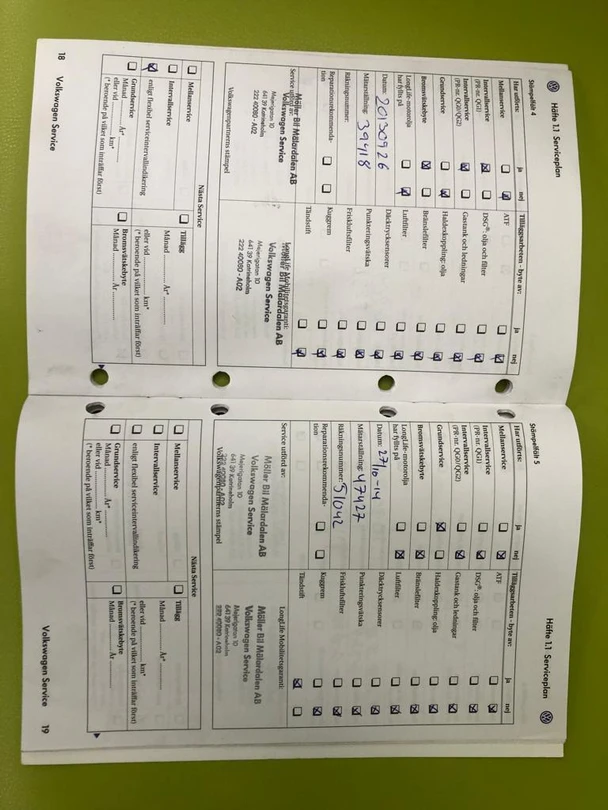 Häfte 1.1 Serviceplan
Stämpelfält 4
Har utförts: ja nej
Mellanservice
Intervallservice
(PR-nr. QG1)
Intervallservice
(PR-nr. QG0/QG2)
Grundservice
Bromsvätskebyte
LongLife-motorolja
har fyllts på
Datum: 20130926
Mätarställning: 39418
Räkningsnummer:
Reparationsrekommenda-
tion
Service utförd av:
Möller Bil Mälardalen AB
Volkswagen Service
Majorigatan 10
641 39 Katrineholm
222 40080 - A02
Volkswagenpartnerns stämpel
Tilläggsarbeten - byte av: ja nej
ATF
DSG®: olja och filter
Gastank och ledningar
Haldexkoppling: olja
Bränslefilter
Luftfilter
Däcktrycksensorer
Punkteringsvätska
Friskluftsfilter
Kuggrem
Tändstift
LongLife Mobilitetsgaranti:
Möller Bil Mälardalen AB
Volkswagen Service
Majorigatan 10
641 39 Katrineholm
222 40080 - A02
Nästa Service
Mellanservice
Intervallservice
enligt flexibel serviceintervallindikering
Grundservice
Månad År*
eller vid km*
(* beroende på vilket som inträffar först)
Tillägg
Månad År*
eller vid km*
(* beroende på vilket som inträffar först)
Bromsvätskebyte
Månad År
18 Volkswagen Service
Häfte 1.1 Serviceplan
Stämpelfält 5
Har utförts: ja nej
Mellanservice
Intervallservice
(PR-nr. QG1)
Intervallservice
(PR-nr. QG0/QG2)
Grundservice
Bromsvätskebyte
LongLife-motorolja
har fyllts på
Datum: 27/10-14
Mätarställning: 47427
Räkningsnummer: 51042
Reparationsrekommenda-
tion
Service utförd av:
Möller Bil Mälardalen AB
Volkswagen Service
Majorigatan 10
641 39 Katrineholm
222 40080 - A02
Volkswagenpartnerns stämpel
Tilläggsarbeten - byte av: ja nej
ATF
DSG®: olja och filter
Gastank och ledningar
Haldexkoppling: olja
Bränslefilter
Luftfilter
Däcktrycksensorer
Punkteringsvätska
Friskluftsfilter
Kuggrem
Tändstift
LongLife Mobilitetsgaranti:
Möller Bil Mälardalen AB
Volkswagen Service
Majorigatan 10
641 39 Katrineholm
222 40080 - A02
Nästa Service
Mellanservice
Intervallservice
enligt flexibel serviceintervallindikering
Grundservice
Månad År*
eller vid km*
(* beroende på vilket som inträffar först)
Tillägg
Månad År*
eller vid km*
(* beroende på vilket som inträffar först)
Bromsvätskebyte
Månad År
Volkswagen Service 19